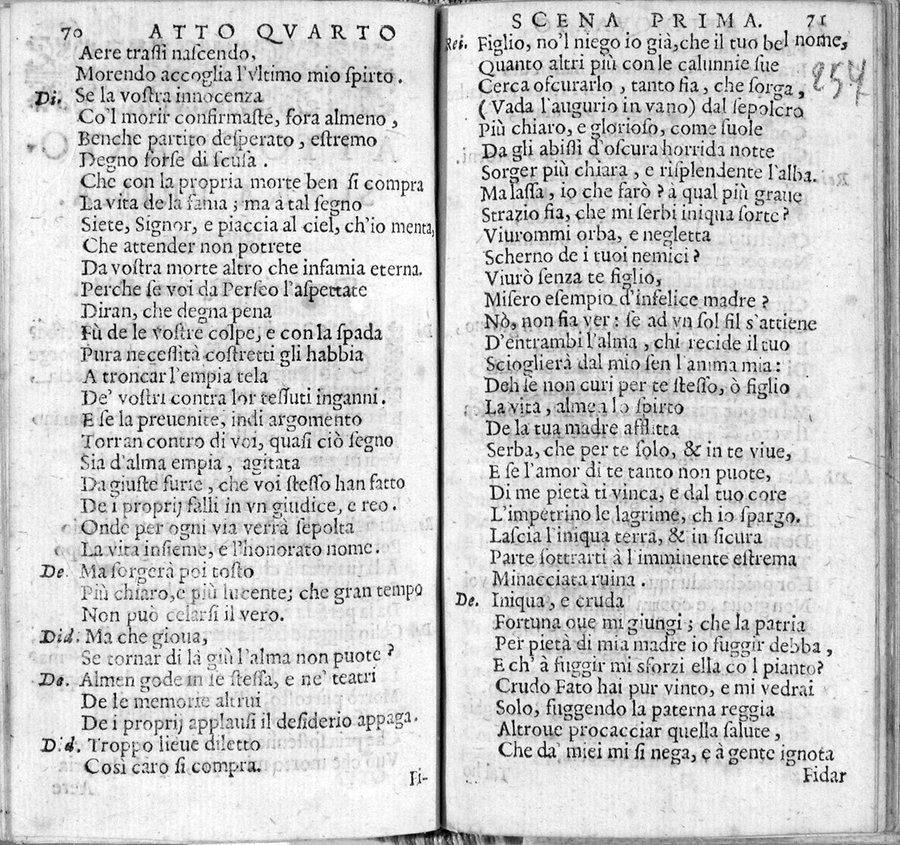 70 ATTO QVARTO
Aere trassi nascendo,
Morendo accoglia l'vltimo mio spirto.
Di. Se la vostra innocenza
Co'l morir confirmaste, fora almeno,
Benche partito desperato, estremo
Degno forse di scusa.
Che con la propria morte ben si compra
La vita de la fama; ma à tal segno
Siete, Signor, e piaccia al ciel, ch'io menta,
Che attender non potrete
Da vostra morte altro che infamia eterna.
Perche se voi da Perseo l'aspettate
Diran, che degna pena
Fù de le vostre colpe, e con la spada
Pura necessità costretti gli habbia
A troncar l'empia tela
De' vostri contra lor tessuti inganni.
E se la preuenite, indi argomento
Torran contro di voi, quasi ciò segno
Sia d'alma empia, agitata
Da giuste furie, che voi stesso han fatto
De i proprij falli in vn giudice, e reo.
Onde per ogni via verrà sepolta
La vita insieme, e l'honorato nome.
De. Ma sorgerà poi tosto
Più chiaro, e più lucente; che gran tempo
Non può celarsi il vero.
Did. Ma che gioua,
Se tornar di là giù l'alma non puote?
De. Almen gode in se stessa, e ne' teatri
De le memorie altrui
De i proprij applausi il desiderio appaga.
Did. Troppo lieue diletto
Così caro si compra.
Fi-
SCENA PRIMA. 71
Rei. Figlio, no'l niego io già, che il tuo bel nome,
Quanto altri più con le calunnie sue
Cerca oscurarlo, tanto fia, che sorga,
(Vada l'augurio in vano) dal sepolcro
Più chiaro, e glorioso, come suole
Da gli abissi d'oscura horrida notte
Sorger più chiara, e risplendente l'alba.
Ma lassa, io che farò? à qual più graue
Strazio fia, che mi serbi iniqua sorte?
Viurommi orba, e negletta
Scherno de i tuoi nemici?
Viurò senza te figlio,
Misero esempio d'infelice madre?
Nò, non fia ver: se ad vn sol fil s'attiene
D'entrambi l'alma, chi recide il tuo
Scioglierà dal mio sen l'anima mia:
Deh se non curi per te stesso, ò figlio
La vita, almen lo spirto
De la tua madre afflitta
Serba, che per te solo, & in te viue,
E se l'amor di te tanto non puote,
Di me pietà ti vinca, e dal tuo core
L'impetrino le lagrime, ch io spargo.
Lascia l'iniqua terra, & in sicura
Parte sottrarti à l'imminente estrema
Minacciata ruina.
De. Iniqua, e cruda
Fortuna oue mi giungi; che la patria
Per pietà di mia madre io fuggir debba,
E ch' à fuggir mi sforzi ella co l pianto?
Crudo Fato hai pur vinto, e mi vedrai
Solo, fuggendo la paterna reggia
Altroue procacciar quella salute,
Che da' miei mi si nega, e à gente ignota
Fidar
257